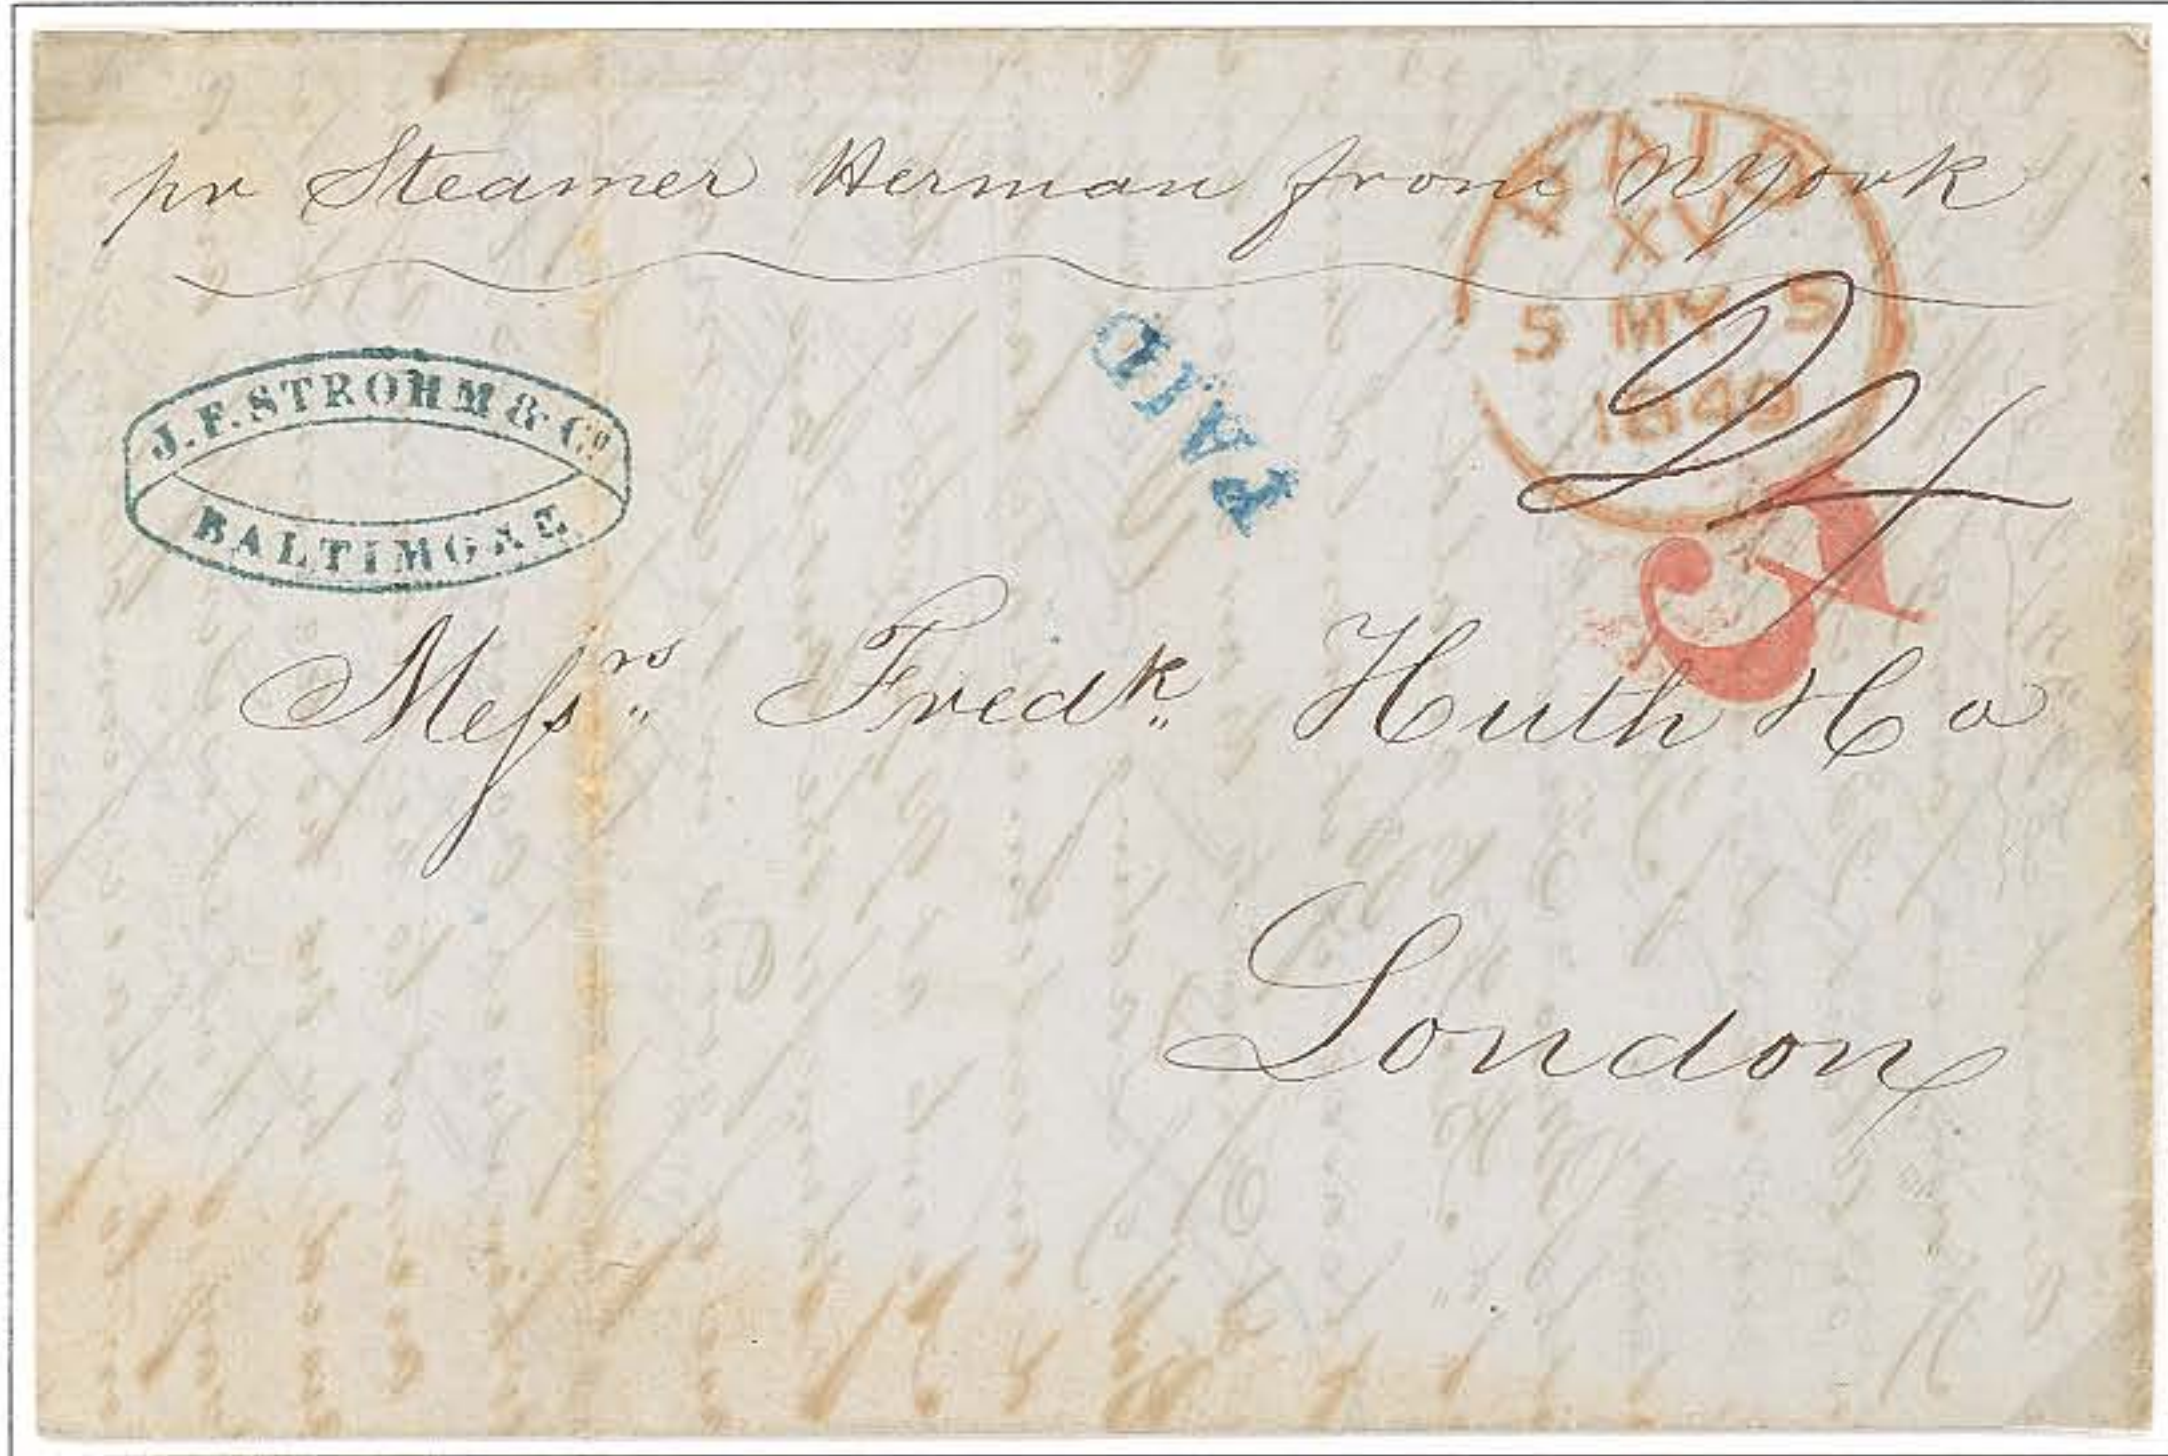 pr Steamer Herman from NYork
PAID
XV
5 MY 5
1849
24
PAID
J. F. STROHM & Co
BALTIMORE
3
Messrs Fredk Huth & Co
London